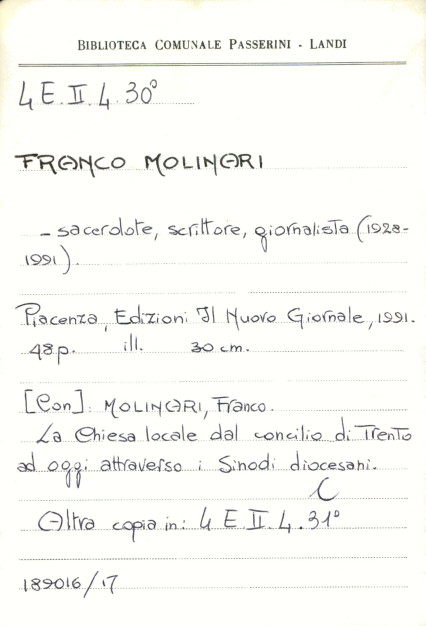 BIBLIOTECA COMUNALE PASSERINI - LANDI
4 E. II. 4. 30°
FRANCO MOLINARI
- sacerdote, scrittore, giornalista (1928-
1991).
Piacenza, Edizioni Il Nuovo Giornale, 1991.
48 p. ill. 30 cm.
[Con]: MOLINARI, Franco.
La Chiesa locale dal concilio di Trento
ad oggi attraverso i Sinodi diocesani.
Altra copia in: 4 E. II. 4. 31°
189016/17